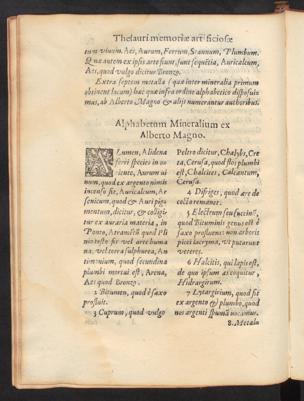 Thesauri memoriæ artificiosæ
tum vivum. Aes, Aurum, Ferrum, Stannum, Plumbum.
Quæ autem ex ipsis arte fiunt, sunt sequētia, Auricalcum,
Aes, quod vulgo dicitur Bronzo.
Extra septem metalla (quæ inter mineralia primum
obtinent locum) hæc quæ infra ordine alphabetico disposui
mus, ab Alberto Magno & alijs numerantur authoribus.
Alphabetum Mineralium ex
Alberto Magno.
ALumen,
species in
oriente, Aurum
num, quod ex argento nimis
incenso fit, Auricalcum, Ar
senicum, quod & Auri pig
mentum, dicitur, & colligi
tur ex auraria materia, in
Ponto, Atramētū quod Pli
nio teste fit vel arte huma
na, vel terra sulphurea, An
timonium, quod secundina
plumbi mortui est, Arena,
Aes quod Bronzo.
2 Bitumen, quod è saxo
profluit.
3 Cuprum, quod vulgo
Peltro dicitur, Chalybs, Cre
ta, Cerusa, quod flos plumbi
est, Chalcites, Calcantum,
Cerusa.
4 quæ de
5 Electrum seu succinū,
quod Bituminis
saxo profluens: non arboris
picei lacryma, vt putarunt
veteres.
6 Halcitis, qui lapis est,
de quo ipsum æs coquitur,
Hidrargirum.
7 Lytargirium, quod fit
ex argento & plumbo, quod
nos argenti spumā vocamus.
8. Metalu